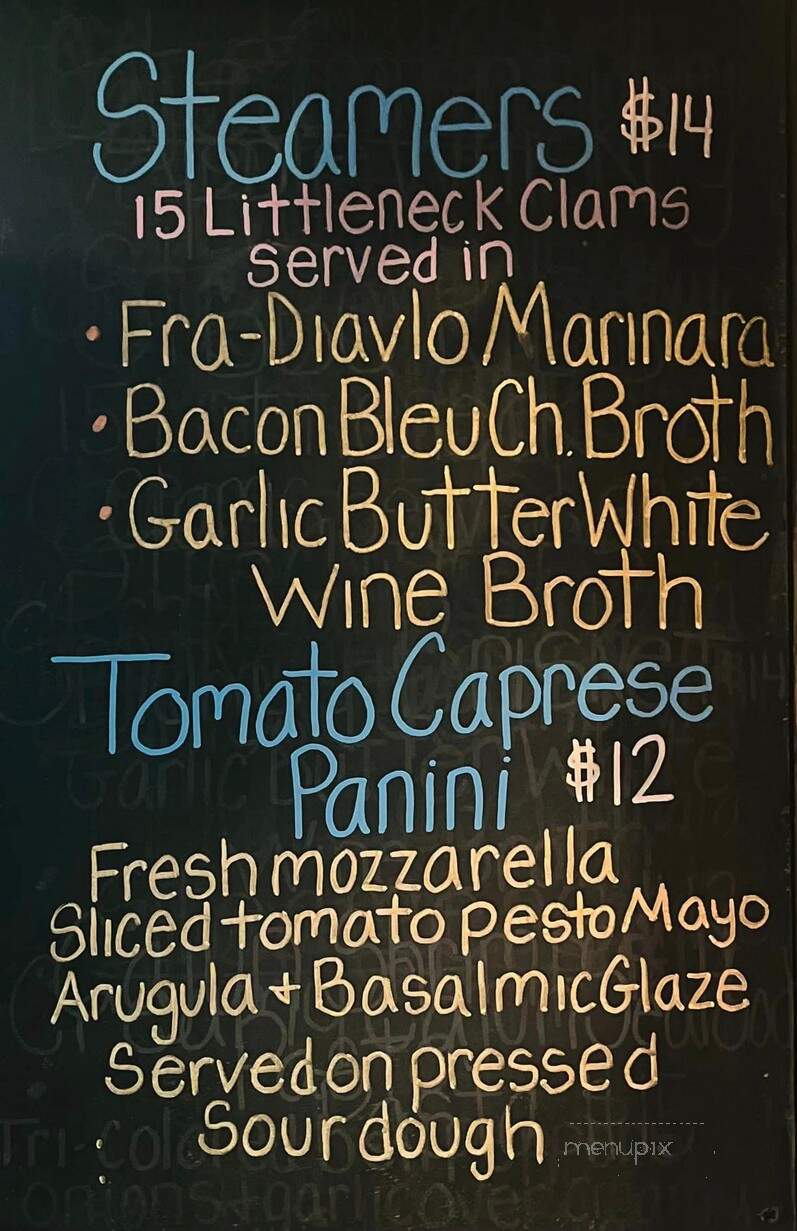 Steamers $14
15 Littleneck Clams
served in
• Fra-Diavlo Marinara
• Bacon Bleu Ch. Broth
• Garlic Butter White
Wine Broth
Tomato Caprese
Panini $12
Fresh mozzarella
Sliced tomato pesto Mayo
Arugula + Basalmic Glaze
Served on pressed
Sourdough
menupix